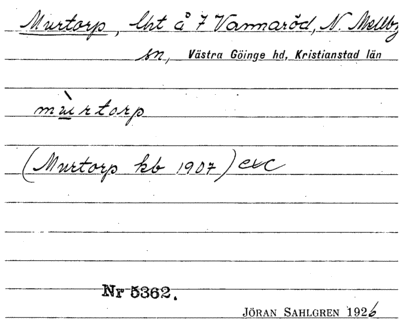 Murtorp, lht å 7 Vannaröd, N. Mellby
sn, Västra Göinge hd, Kristianstad län
mùrtorp
(Murtorp kb 1907) exc
Nr 5362.
JÖRAN SAHLGREN 1926